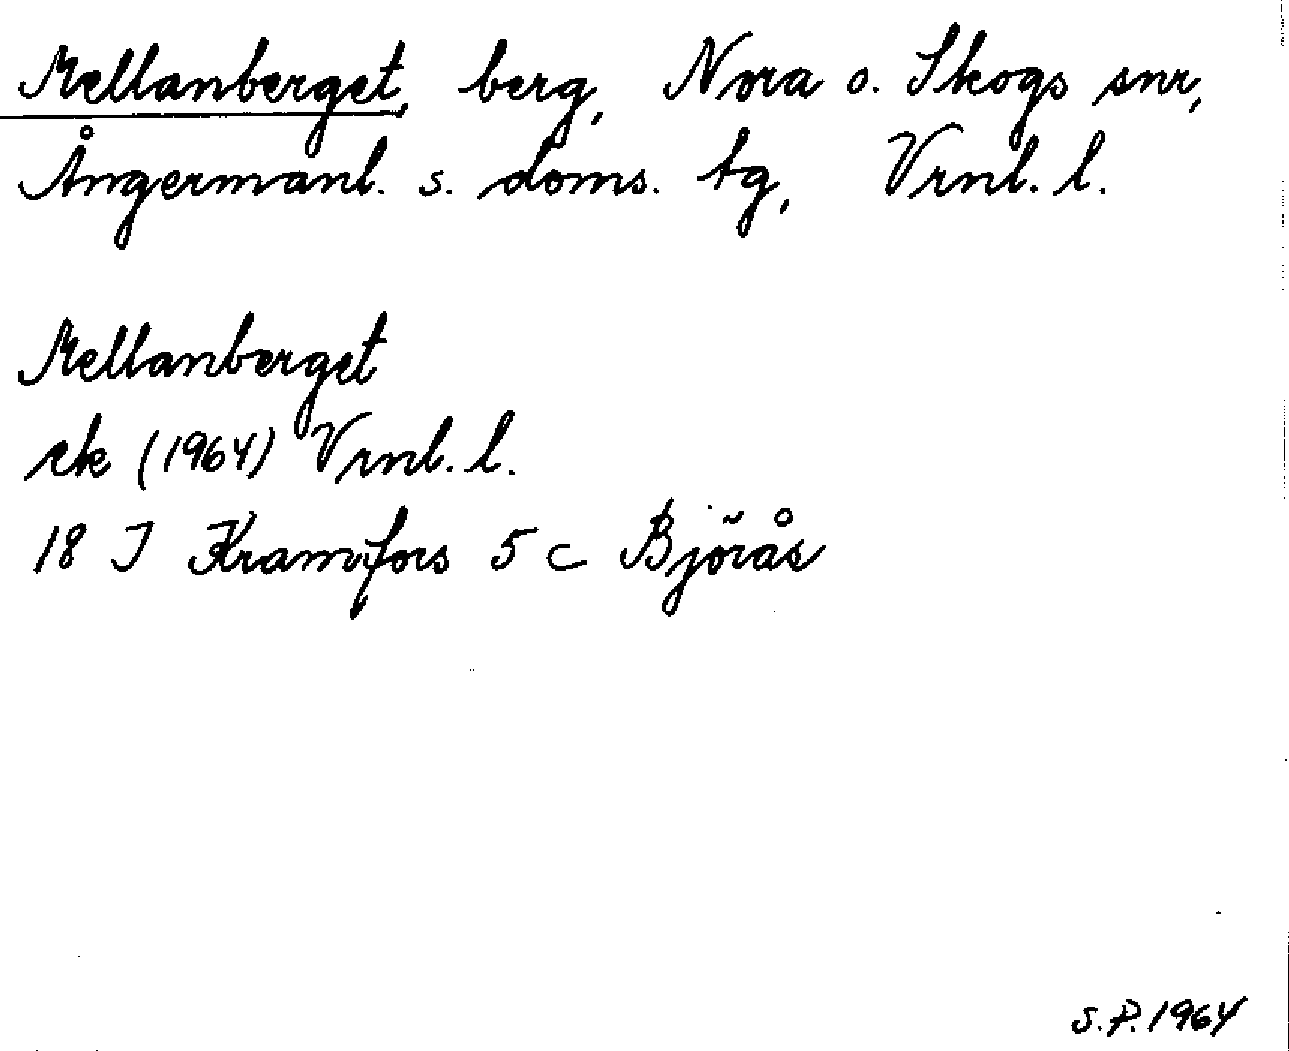 Mellanberget, berg, Nora o. Skogs snr,
Ångermanl. s. doms. tg, Vrnl. l.
Mellanberget
ek (1964) Vrnl. l.
18 I Kramfors 5 c Björås
S.P. 1964